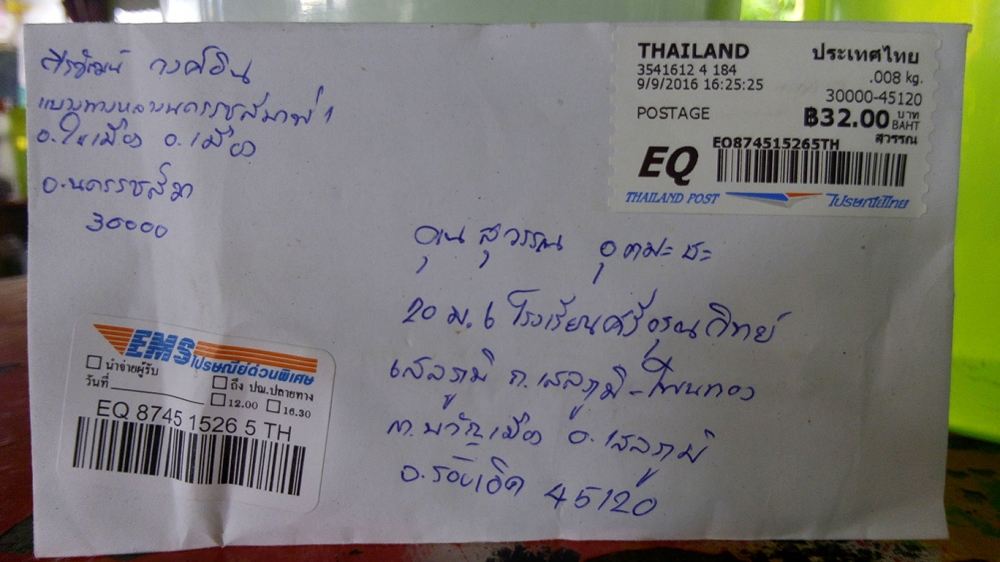 ศิริวัฒน์ วงศ์อิน
แขวงทางหลวงนครราชสีมาที่ 1
ต.ในเมือง อ.เมือง
จ.นครราชสีมา
30000
THAILAND ประเทศไทย
3541612 4 184 .008 kg.
9/9/2016 16:25:25 30000-45120
POSTAGE ฿32.00 บาท BAHT
สุวรรณ
EQ EQ874515265TH
THAILAND POST ไปรษณีย์ไทย
คุณ สุวรรณ อุตมะชะ
20 ม.6 โรงเรียนศรีอรุณวิทย์
เสลภูมิ ถ.เสลภูมิ-โพนทอง
ต.ขวัญเมือง อ.เสลภูมิ
จ.ร้อยเอ็ด 45120
EMS ไปรษณีย์ด่วนพิเศษ
นำจ่ายผู้รับ ถึง ปณ.ปลายทาง
วันที่ 12.00 16.30
EQ 8745 1526 5 TH